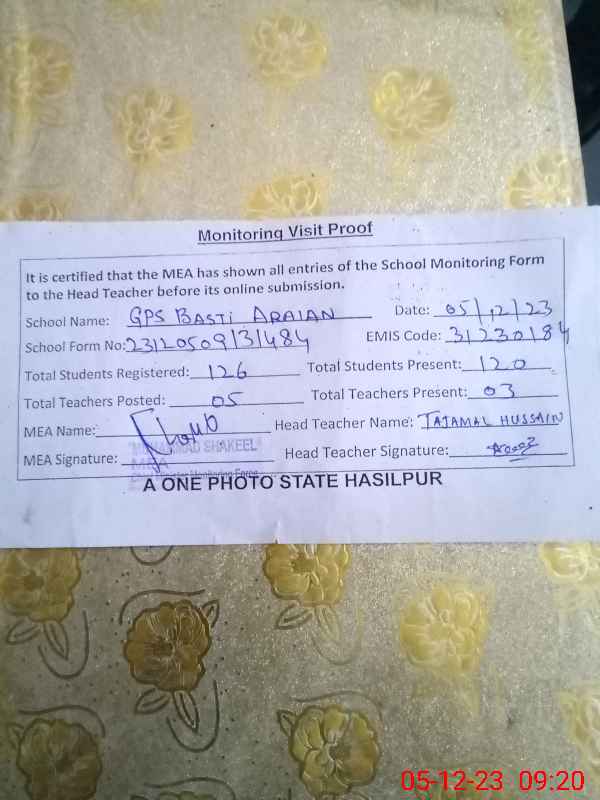 Monitoring Visit Proof
It is certified that the MEA has shown all entries of the School Monitoring Form
to the Head Teacher before its online submission.
School Name: GPS BASTI ARAIAN Date: 05/12/23
School Form No: 23120509131484 EMIS Code: 31230184
Total Students Registered: 126 Total Students Present: 120
Total Teachers Posted: 05 Total Teachers Present: 03
MEA Name: Head Teacher Name: TAJAMAL HUSSAIN
MUHAMMAD SHAKEEL
MEA Signature: MEA Head Teacher Signature:
Monitoring Force
A ONE PHOTO STATE HASILPUR
05-12-23 09:20